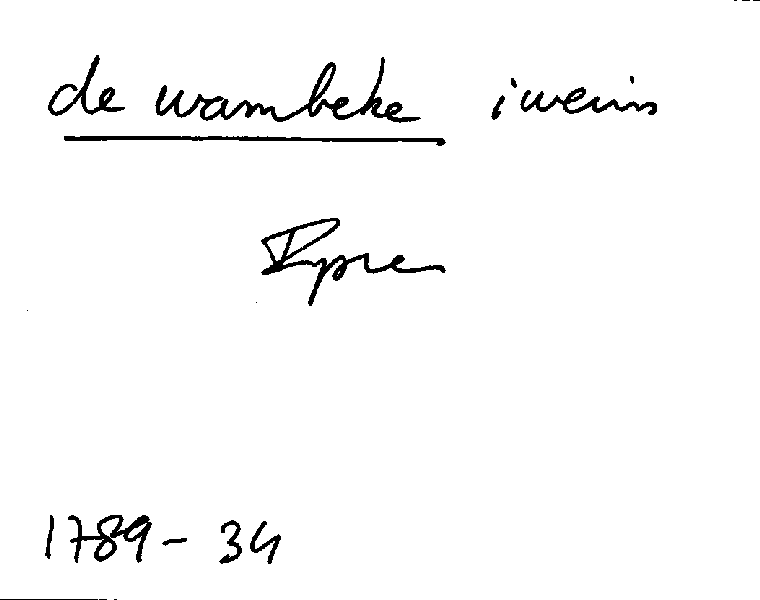 de wambeke iweins
Ypres
1789 - 34